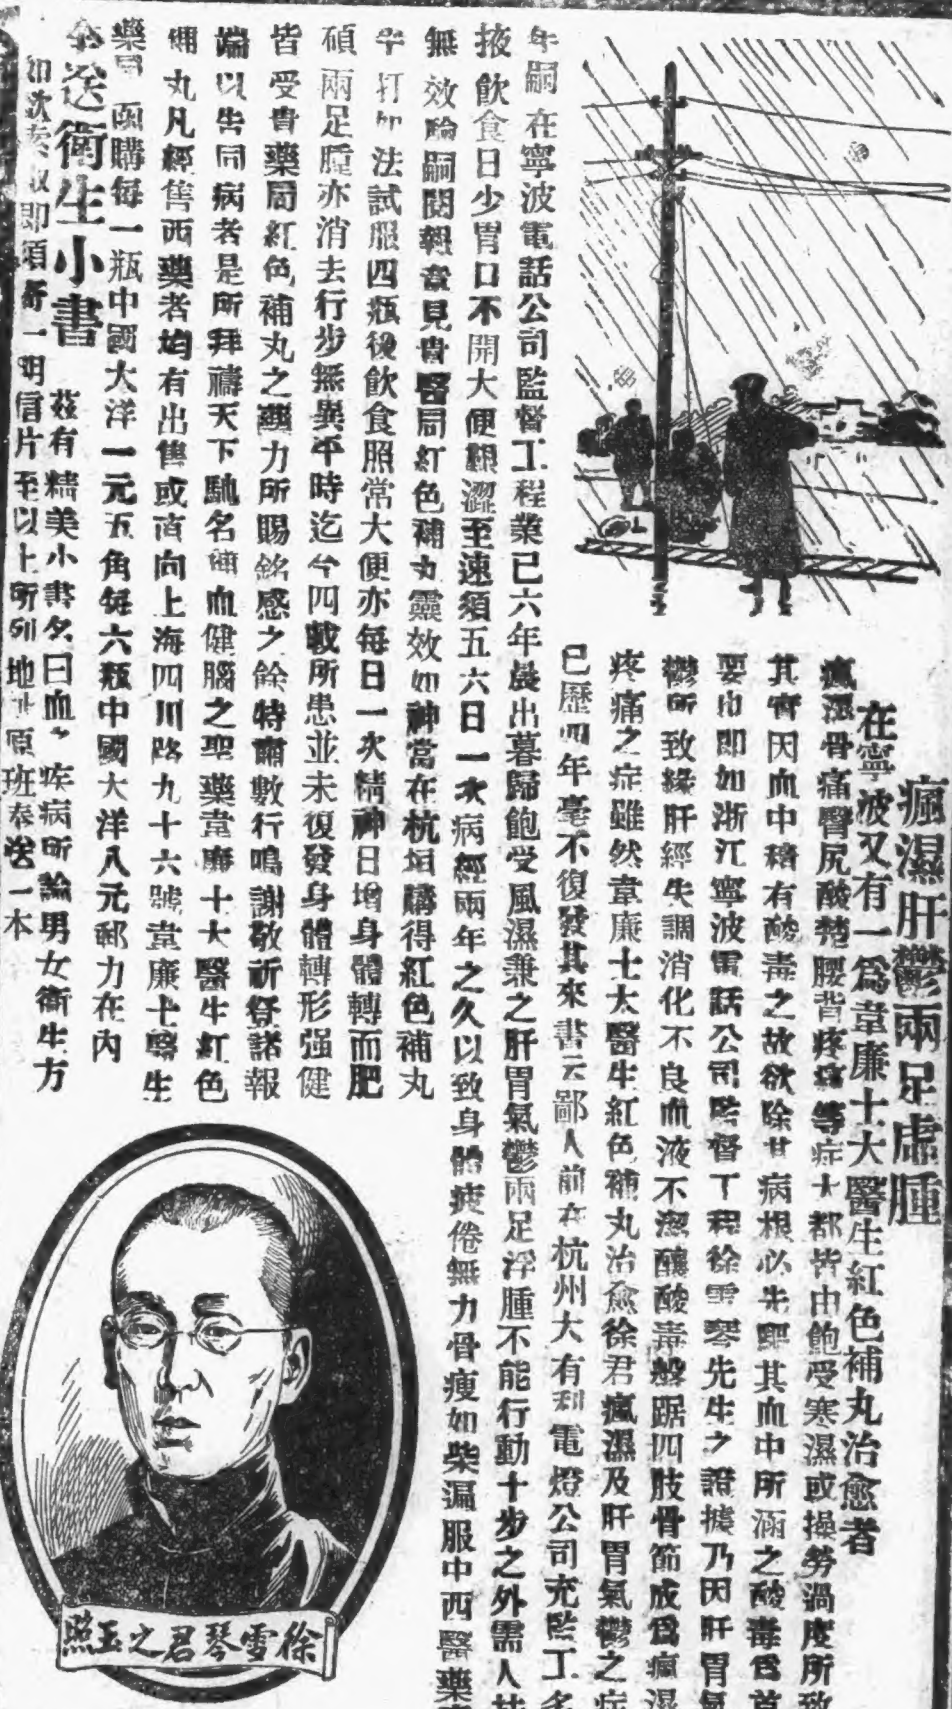 瘋濕肝鬱兩足虛腫
在寧波又有一爲韋廉士大醫生紅色補丸治愈者
瘋濕骨痛臀尻酸楚腰背疼痛等症大都皆由飽受寒濕或操勞過度所致
其實因血中積有酸毒之故欲除其病根必先驅其血中所涵之酸毒爲首
要也即如浙江寧波電話公司監督工程徐雪琴先生之證據乃因肝胃氣
鬱所致緣肝經失調消化不良血液不潔釀酸毒盤踞四肢骨節成爲瘋濕
疼痛之症雖然韋廉士大醫生紅色補丸治愈徐君瘋濕及肝胃氣鬱之症
已歷四年毫不復發其來書云鄙人前在杭州大有利電燈公司充監工多
年嗣在寧波電話公司監督工程業已六年晨出暮歸飽受風濕兼之肝胃氣鬱兩足浮腫不能行動十步之外需人扶
掖飲食日少胃口不開大便艱澀至速須五六日一次病經兩年之久以致身體疲倦無力骨瘦如柴漏服中西醫藥
無效論嗣閱報章見貴醫局紅色補丸靈效如神當在杭垣購得紅色補丸
半打如法試服四瓶後飲食照常大便亦每日一次精神日增身體轉而肥
碩兩足腫亦消去行步無異平時迄今四載所患並未復發身體轉形强健
皆受貴藥局紅色補丸之藥力所賜銘感之餘特肅數行鳴謝敬祈登諸報
端以告同病者是所拜禱天下馳名補血健腦之聖藥韋廉士大醫生紅色
補丸凡經售西藥者均有出售或直向上海四川路九十六號韋廉士醫生
藥局函購每一瓶中國大洋一元五角每六瓶中國大洋八元郵力在內
奉送衛生小書 茲有精美小書名曰血 疾病所論男女衛生方
如欲索取即須寄一明信片至以上所列地址原班奉送一本
徐雪琴君之玉照